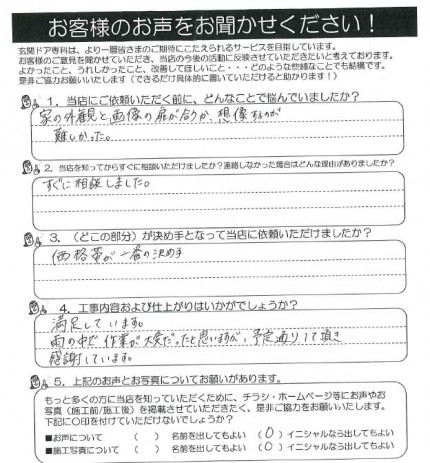 お客様のお声をお聞かせください！
玄関ドア専科は、より一層皆さまのご期待にこたえられるサービスを目指しています。
お客様のご意見を聞かせていただき、当店の今後の活動に反映させていただきたいと考えております。
よかったこと、うれしかったこと、改善してほしいこと・・・どのような些細なことでも結構です。
是非ご協力お願いします！（できるだけ具体的に書いていただけると助かります！）
1．当店にご依頼いただく前に、どんなことで悩んでいましたか？
家の外観と画像の扉が合うか、想像するのが
難しかった。
2．当店を知ってからすぐに相談いただけましたか？連絡しなかった場合はどんな理由がありましたか？
すぐに相談しました。
3．（どこの部分）が決め手となって当店に依頼いただけましたか？
価格帯が一番の決め手
4．工事内容および仕上がりはいかがでしょうか？
満足しています。
雨の中で作業が大変だったと思いますが、予定通りして頂き
感謝しています。
5．上記のお声とお写真についてお願いがあります。
もっと多くの方に当店を知っていただくために、チラシ・ホームページ等にお声やお
写真（施工前/施工後）を掲載させていただきたく、是非ご協力をお願いいたします。
下記に〇印を付けていただけないでしょうか？
■お声について （ ） 名前を出してもよい （〇）イニシャルなら出してもよい
■施工写真について（ ） 名前を出してもよい （〇）イニシャルなら出してもよい